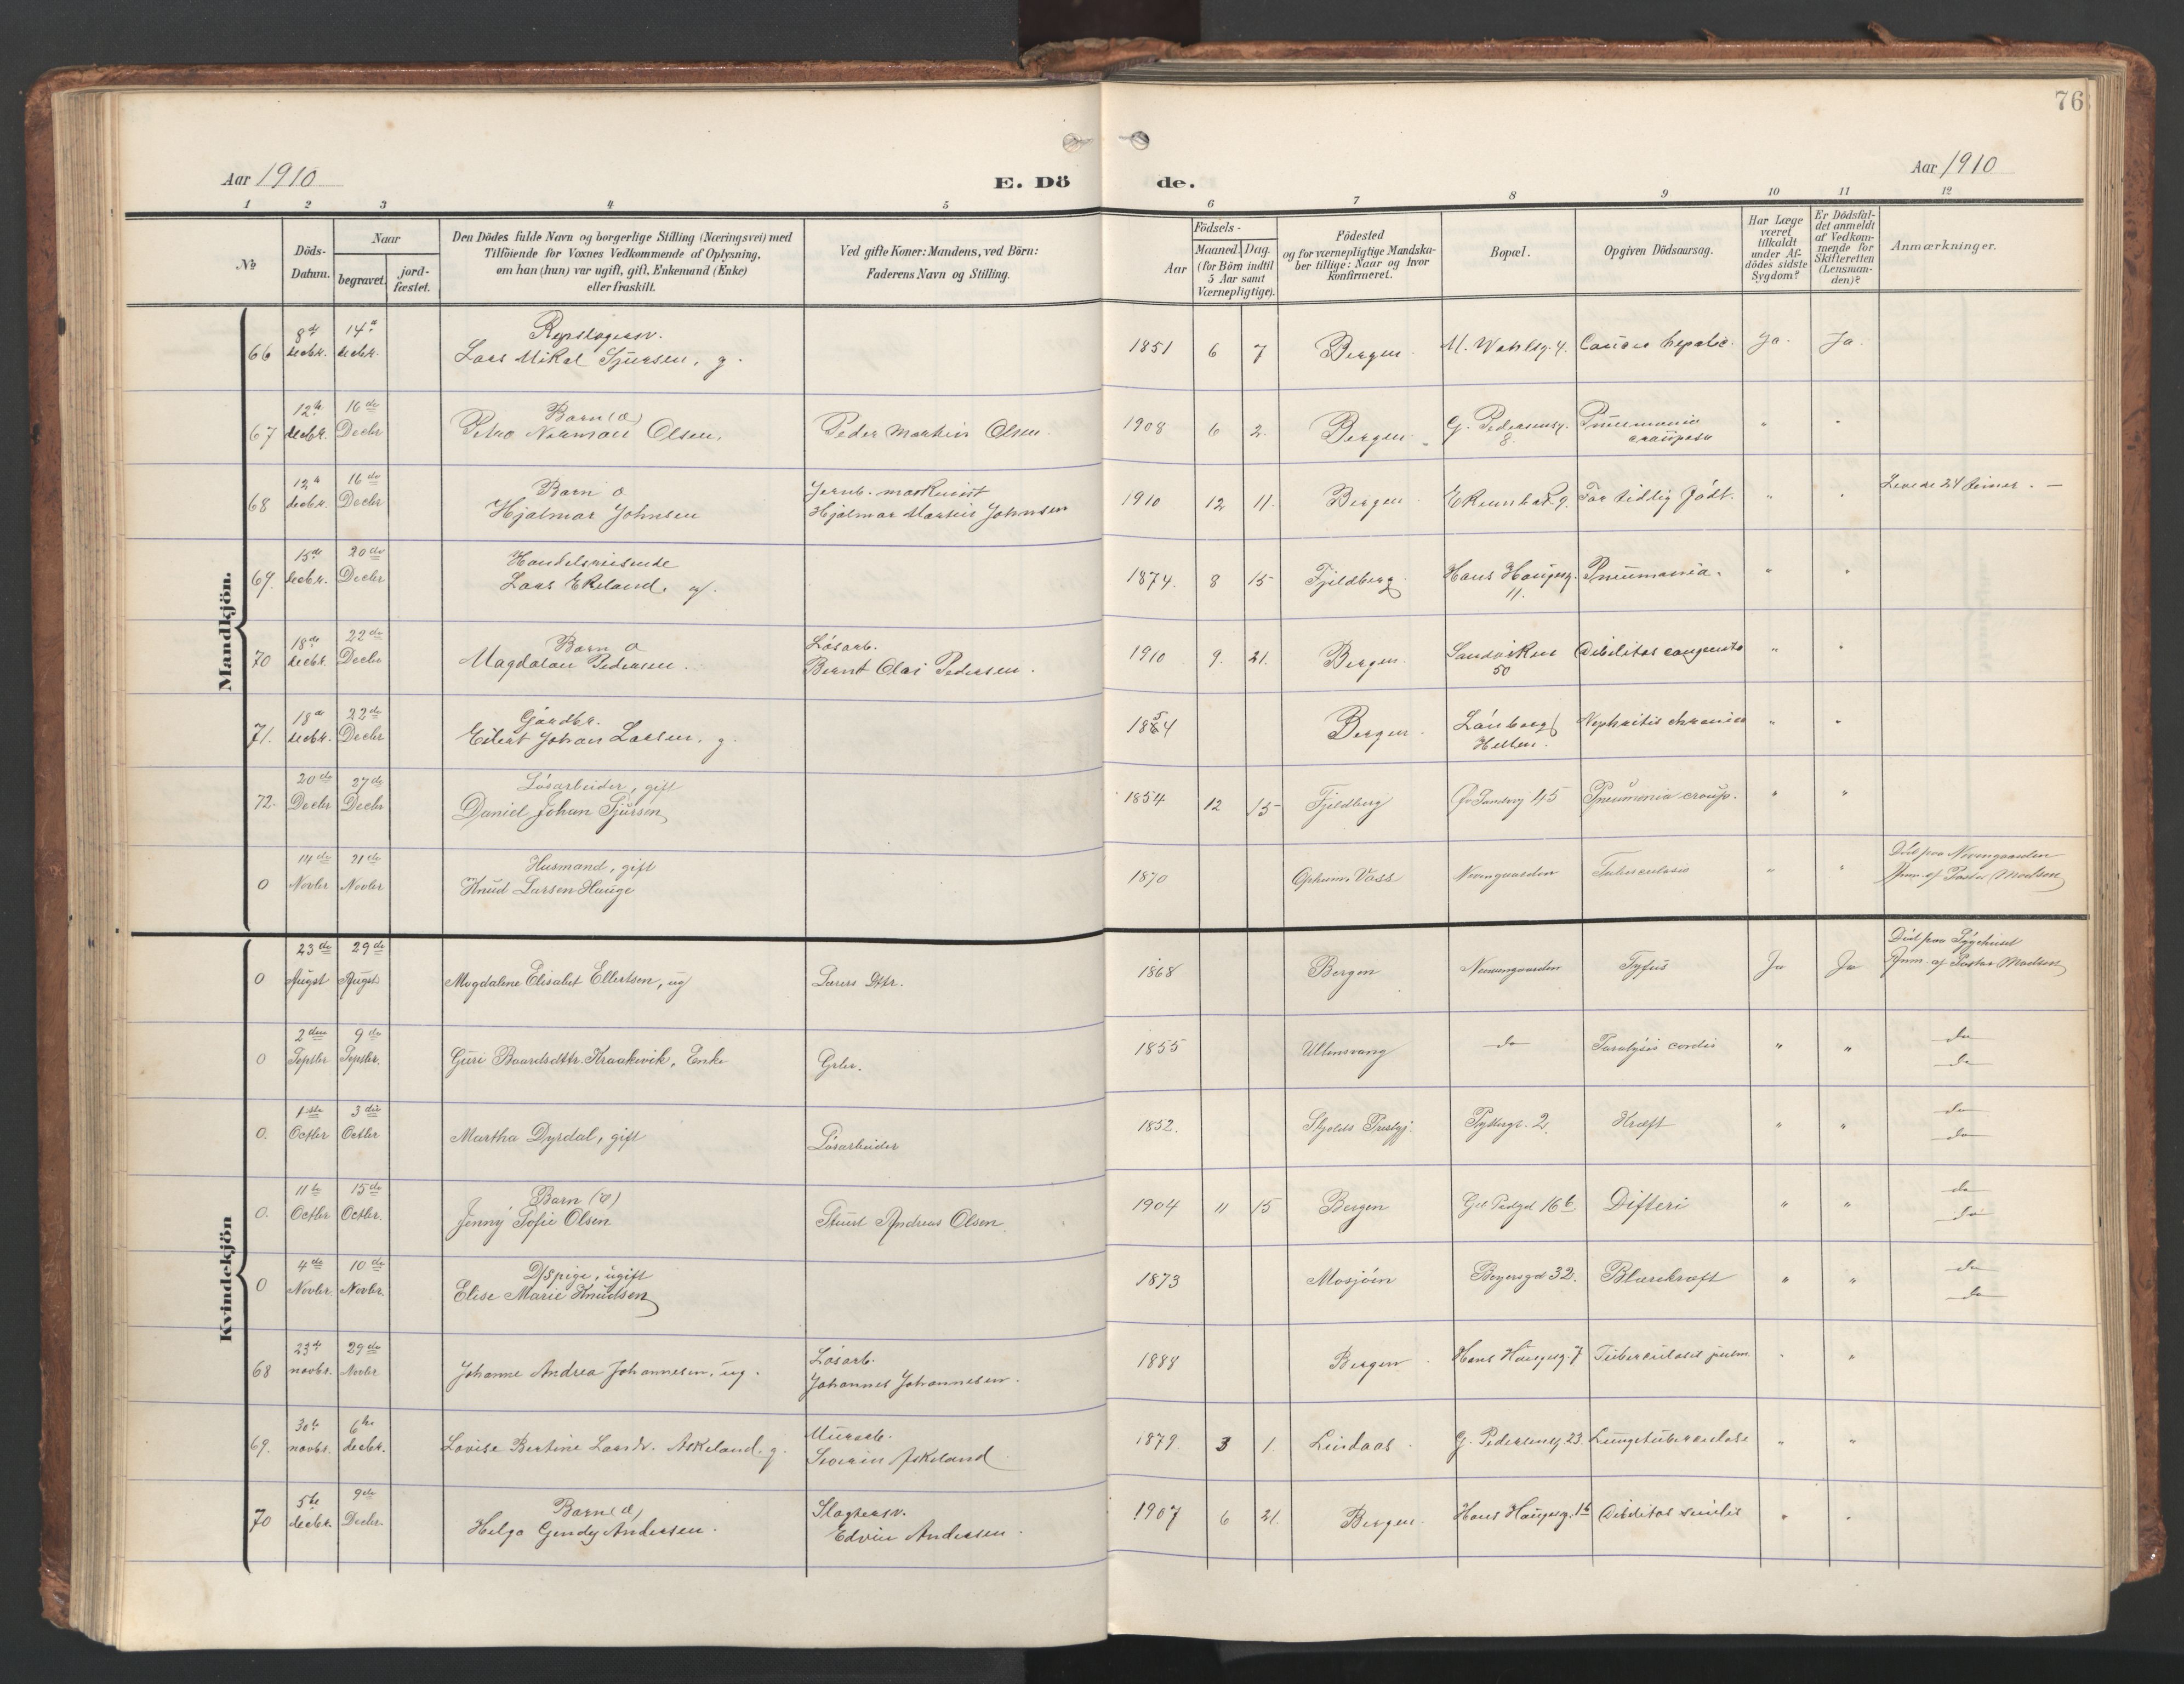 76
Aar 1910
E. Dö
de.
Aar 1910
1 2 3 4 5 6 7 8 9 10 11 12
№
Döds-Datum.
Naar
begravet.
jord-fæstet.
Den Dödes fulde Navn og borgerlige Stilling (Næringsvei) med
Tilföiende for Voxnes Vedkommende af Oplysning,
om han (hun) var ugift, gift, Enkemand (Enke)
eller fraskilt.
Ved gifte Koner: Mandens, ved Börn:
Faderens Navn og Stilling.
Födsels-
Aar
Maaned. Dag.
(for Börn indtil
5 Aar samt
Værnepligtige).
Födested
og for værnepligtige Mandska-
ber tillige: Naar og hvor
konfirmeret.
Bopæl.
Opgiven Dödsaarsag.
Har Læge
været
tilkaldt
under Af-
dödes sidste
Sygdom?
Er Dödsfal-
det anmeldt
af Vedkom-
mende for
Skifteretten
(Lensman-
den)?
Anmærkninger.
Mandkjön.
66 8de decbr. 14de decbr.
Repslagersv.
Lars Mikal Sjursen, g.
1851 6 7 Bergen M. Wahlsg. 4. Cancer hepatis. Ja. Ja.
67 12te decbr. 16de Decbr
Barn (æ)
Petro Norman Olsen. Peder Martin Olsen.
1908 6 2. Bergen G. Pedersensg. 8. Pneumonia crouposa " "
68 12te decbr. 16de Decbr
Barn æ
Hjalmar Johnsen
Jernb. maskinist
Hjalmar Martin Johnsen
1910 12 11. Bergen For tidlig födt. " " Levede 24 timer. —
69. 15de decbr. 20de Decbr
Handelsreisende
Lars Ekeland. g.
1874. 8 15 Fjeldberg Hans Haugesg. 11. Pneumonia. " "
70 18de decbr. 22de Decbr
Barn æ
Magdalon Pedersen.
Løsarb.
Bernt Olai Pedersen.
1910 9. 21. Bergen. Sandviken 50 Debilitas congenita " "
71. 18de decbr. 22de Decbr
Gaardbr.
Eilert Johan Larsen. g.
1854 Bergen. Hellen. Nephritis chronica " "
72. 20de Decbr 27de Decbr
Løsarbeider, gift
Daniel Johan Sjursen
1854 12 15 Fjeldberg 45 Pneumonia croup. " "
0 14de Novbr 21de Novbr
Husmand, gift
Knud Larsen Hauge
1870 Opheim, Voss Nevengaarden Tuberculosis " " Död paa Nevengaarden
Anm. af Pastor Madsen
Kvindekjön
0 23de Augst 29de Augst
Magdalene Elisabet Ellertsen, ug Lærers Dttr.
1868 Bergen Nevengaarden Tyfus Ja Ja Död paa Sygehuset
Anm. af Pastor Madsen
0 2den Septbr 9de Septbr.
Guri Baardsdttr. Kraakevik, Enke Grbr.
1855 Ullensvang do Paralysis cordis " " do
do
0. 1ste Octbr 3die Octbr
Martha Dyrdal, gift Løsarbeider
1852. Skjolds Prestgj. 2. Kræft " " do
do
0. 11te Octbr 15de Octbr.
Barn (æ)
Jenny Sofie Olsen Stuert Andreas Olsen.
1904 11 15 Bergen 16 b Difteri " " do
do
0 4de Novbr. 10de Novbr.
D/spige, ugift
Elise Marie Knudsen
1873 Mosjöen Beyersgd 32. Blærekræft " " do
do
68 23de novbr. 29de Novbr
Johanne Andrea Johannesen, ug.
Løsarb.
Johannes Johannesen.
1888 Bergen Hans Haugesg. 7 Tuberculosis pulm " "
69. 30te novbr. 6te decbr.
Lovise Bertine Larsdr. Askeland, g.
Murarb.
Severin Askeland
1879. 3 1. Lindaas G. Pedersensg. 23. Lungetuberculose " "
70 5te decbr. 9de Decbr.
Barn (æ)
Helga Gendy Andersen.
Slagtersv.
Edvin Andersen.
1907 6 21. Bergen. Hans Haugesg. 16 Debilitas " "